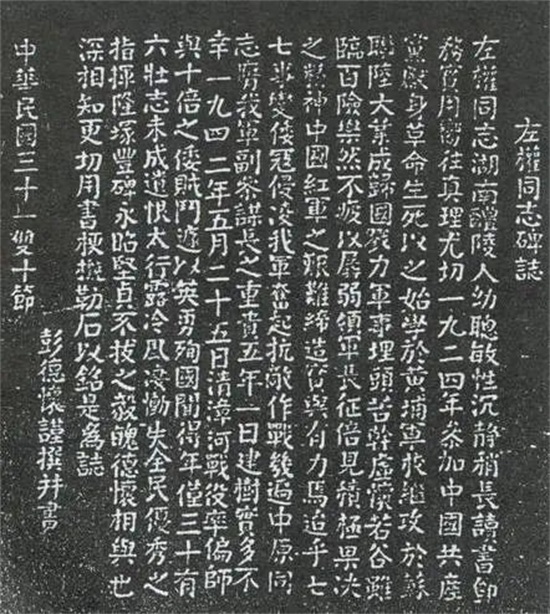 左權同志碑誌
左權同志湖南醴陵人幼聰敏性沉静稍長讀書即
務實用嚮往真理尤切一九二四年參加中國共產
黨獻身革命生死以之始學於黃埔軍校繼攻於蘇
聯陸大業成歸國戮力軍事埋頭苦幹虛懷若谷雖
臨百險樂然不疲以孱弱領軍長征倍見積極果決
之精神中國紅軍之艱難締造實與有力焉迨乎七
七事變倭寇侵凌我軍奮起抗敵作戰幾遍中原同
志膺我軍副參謀長之重責五年一日建樹實多不
幸一九四二年五月二十五日清漳河戰役率偏師
與十倍之倭賊鬥遽以英勇殉國聞得年僅三十有
六壯志未成遺恨太行露冷風淒慟失全民優秀之
指揮隆塚豐碑永昭堅貞不拔之毅魄德懷相與也
深相知更切用書梗概勒石以銘是為誌
彭德懷謹撰并書
中華民國三十一雙十節